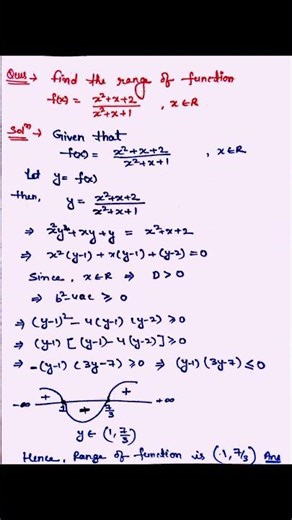 Ques → find the range of function
f(x) = x²+x+2 / x²+x+1 , x∈R
Solⁿ → Given that
f(x) = x²+x+2 / x²+x+1 , x∈R
Let y = f(x)
then, y = x²+x+2 / x²+x+1
⇒ x²y + xy + y = x²+x+2
⇒ x²(y-1) + x(y-1) + (y-2) = 0
Since, x∈R ⇒ D > 0
⇒ b²-4ac ≥ 0
⇒ (y-1)² - 4(y-1)(y-2) ≥ 0
⇒ (y-1)[(y-1) - 4(y-2)] ≥ 0
⇒ -(y-1)(3y-7) ≥ 0 ⇒ (y-1)(3y-7) ≤ 0
+ +
-∞ 1 7/3 +∞
y ∈ (1, 7/3)
Hence, Range of function is (1, 7/3) Ans